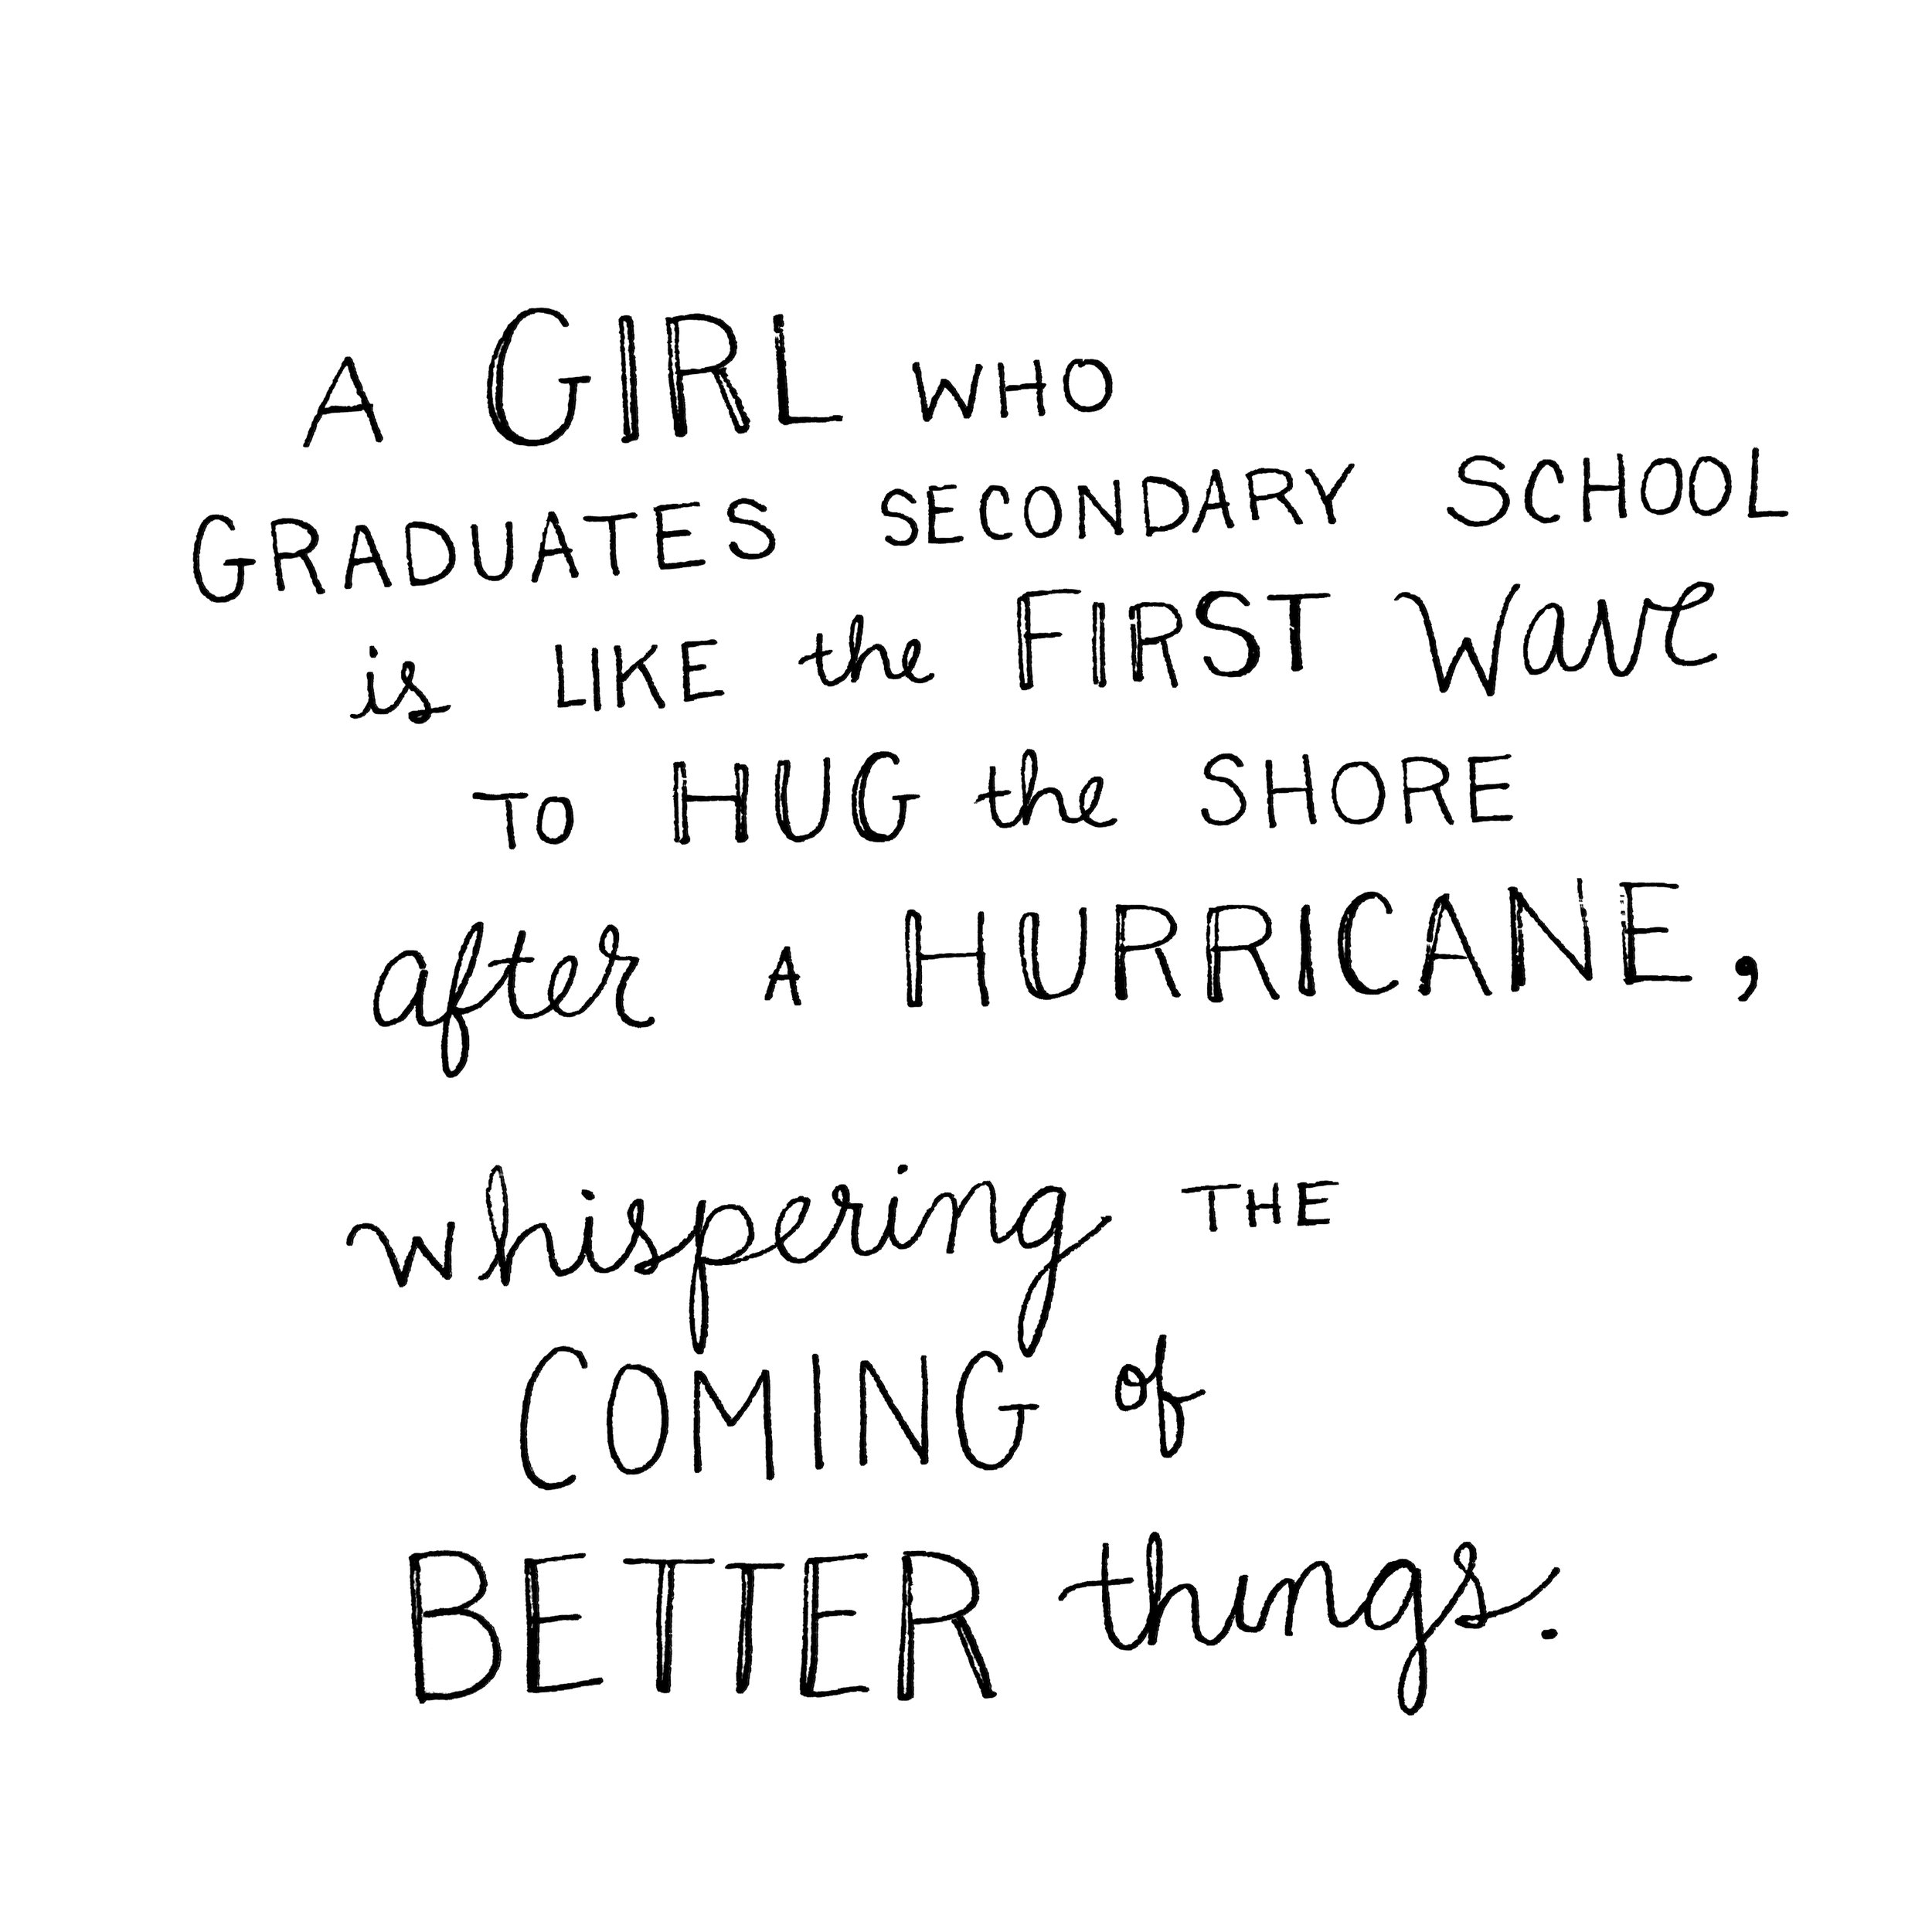 A GIRL WHO
GRADUATES SECONDARY SCHOOL
is LIKE the FIRST Wave
TO HUG the SHORE
after A HURRICANE,
whispering THE
COMING of
BETTER things.